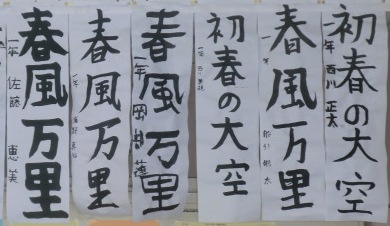 初春の大空
一年 西川 正太
春風万里
一年
初春の大空
春風万里
一年 岡部
春風万里
一年
春風万里
一年 佐藤 恵美